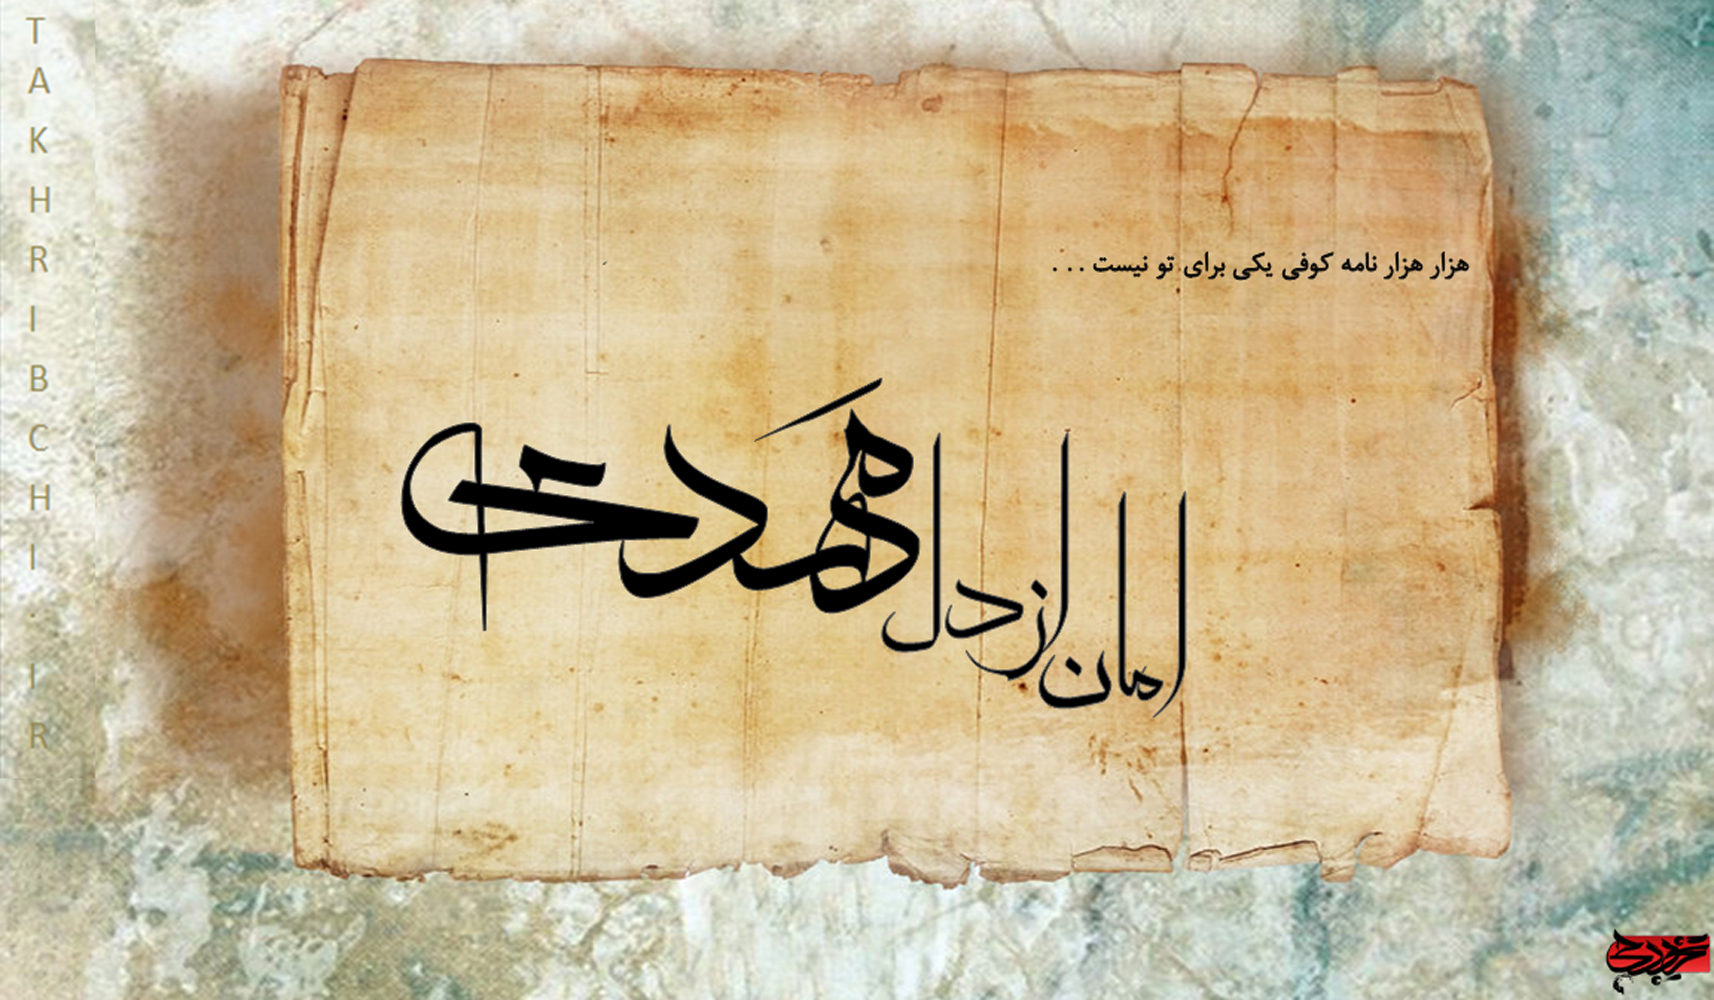 هزار هزار نامه کوفی یکی برای تو نیست . . .
امان از دل مهدی
TAKHRIBCHI.IR